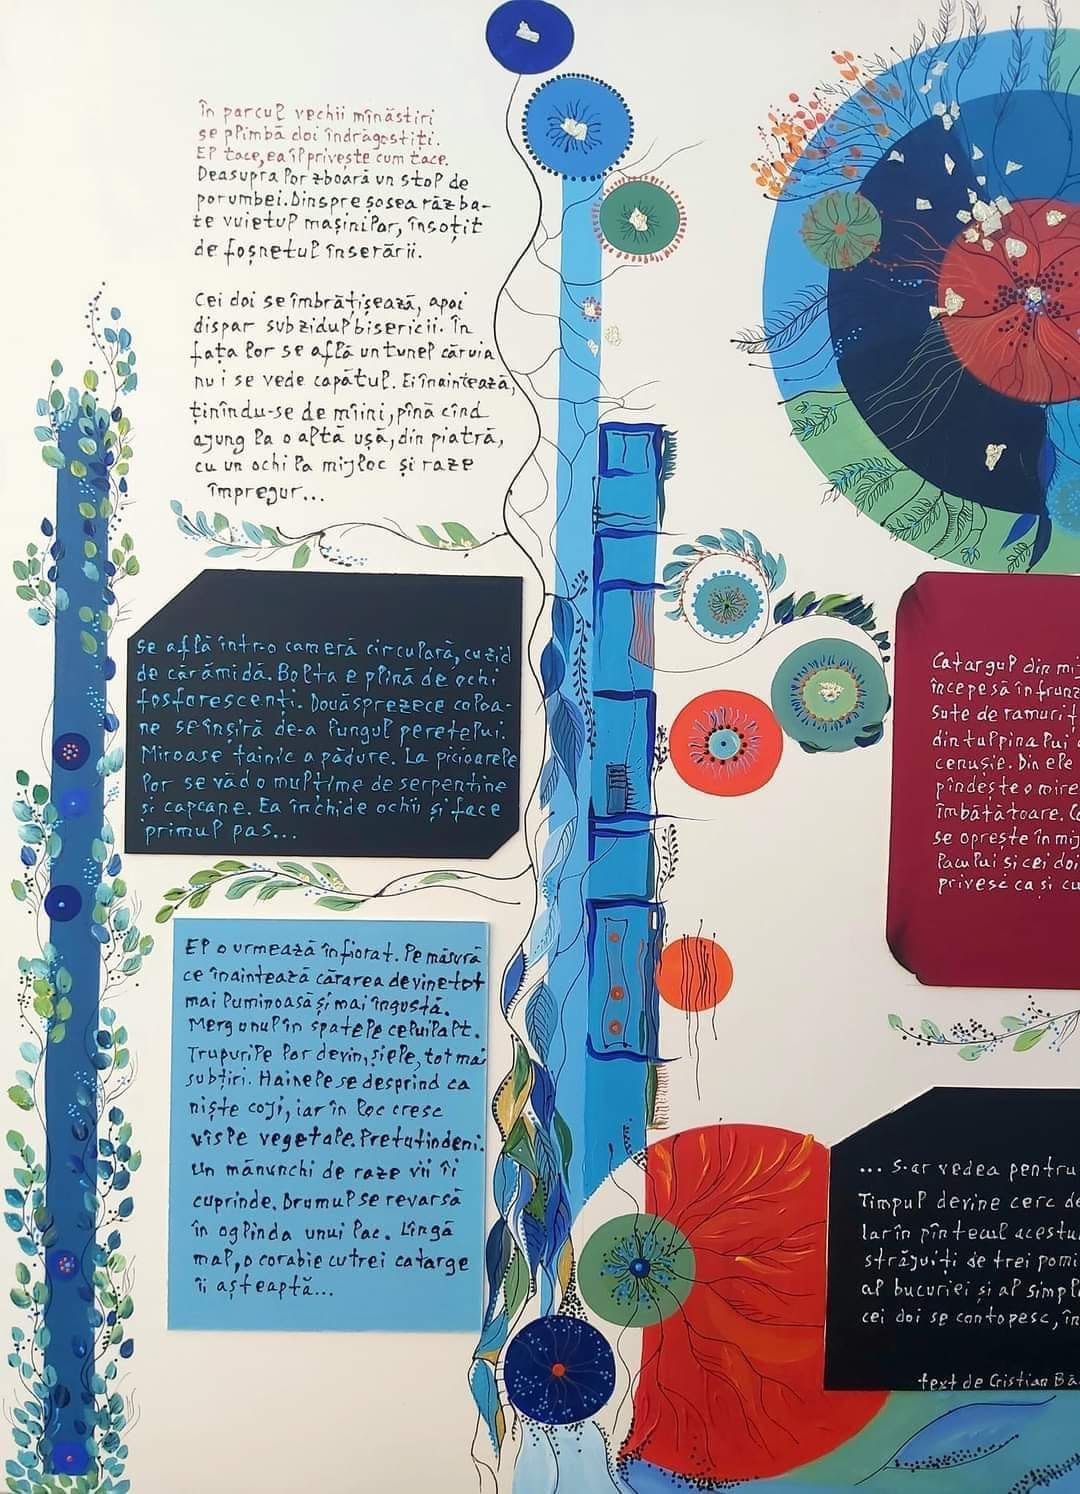 În parcul vechii mînăstiri
se plimbă doi îndrăgostiți.
El tace, ea îl privește cum tace.
Deasupra lor zboară un stol de
porumbei. Dinspre șosea răzba-
te vuietul mașinilor, însoțit
de foșnetul înserării.
Cei doi se îmbrățișează, apoi
dispar sub zidul bisericii. În
fața lor se află un tunel căruia
nu i se vede capătul. Ei înaintează,
ținîndu-se de mîini, pînă cînd
ajung la o altă ușă, din piatră,
cu un ochi la mijloc și raze
împrejur...
Se află într-o cameră circulară, cu zid
de cărămidă. Bolta e plină de ochi
fosforescenți. Douăsprezece coloa-
ne se înșiră de-a lungul peretelui.
Miroase tainic a pădure. La picioarele
lor se văd o mulțime de serpentine
și capcane. Ea închide ochii și face
primul pas...
El o urmează înfiorat. Pe măsură
ce înaintează cărarea devine tot
mai luminoasă și mai îngustă.
Merg unul în spatele celuilalt.
Trupurile lor devin, și ele, tot mai
subțiri. Hainele se desprind ca
niște coji, iar în loc cresc
visle vegetale. Pretutindeni.
Un mănunchi de raze vii îi
cuprinde. Drumul se revarsă
în oglinda unui lac. Lîngă
mal, o corabie cu trei catarge
îi așteaptă...
Catargul din mij
începe să înfrunz
Sute de ramuri ț
din tulpina lui
cenușie. Din ele
pîndește o mire
îmbătătoare. Co
se oprește în mij
lacului și cei doi
privesc ca și cu
... s-ar vedea pentru
Timpul devine cerc de
Iar în pîntecul acestu
străjuiți de trei pomi
al bucuriei și al simpl
cei doi se contopesc, în
text de Cristian Bă